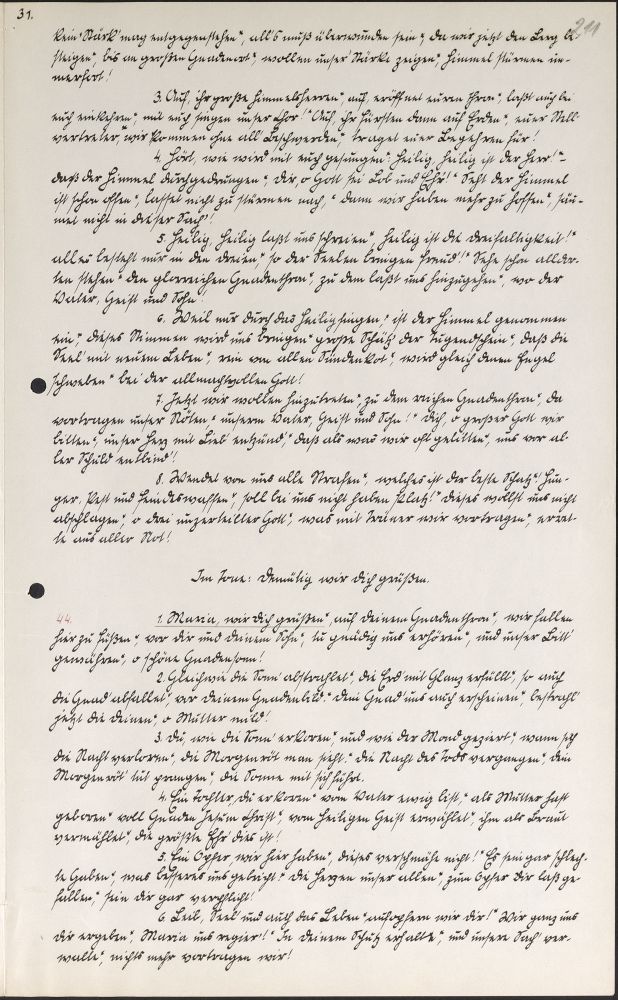 31.
211
kein' Stärk' mag entgegenstehen", all's muß überwunden sein", da wir jetzt den Berg be-
steigen", bis am großen Gnadenort", wollen unser Stärke zeigen", Himmel stürmen im-
merfort!
3. Auf, ihr große Himmelsherren", auf, eröffnet euren Thron", laßt auch bei
euch einkehren", mit euch singen unser Chor!" Auf, ihr Fürsten dann auf Erden", euer Stell-
vertreter, wir kommen ohne all' Beschwerden", traget euer Begehren für!
4. Hört, wie wird mit euch gesungen: Heilig, heilig ist der Herr!"
daß der Himmel durchgedrungen", dir, o Gott sei Lob und Ehr'!" Seht der Himmel
ist schon offen", lasset nicht zu stürmen nach", dann wir haben mehr zu hoffen", säu-
met nicht in dieser Sach'!
5. Heilig, heilig laßt uns schreien", heilig ist die Dreifaltigkeit!"
alles besteht nur in den dreien", so der Seelen bringen Freud'!" Sehe schon alldor-
ten stehen" den glorreichen Gnadenthron", zu dem laßt uns hinzugehen", wo der
Vater, Geist und Sohn!
6. Weil nur durch das Heiligsingen", ist der Himmel genommen
ein", dieses Stimmen wird uns bringen" große Schätz' der Tugendschein", daß die
Seel' mit neuem Leben", rein von allen Sündenkot", wird gleich denen Engel
schweben" bei der allmachtvollen Gott!
7. Jetzt wir wollen hinzutreten", zu dem reichen Gnadenthron", da
vortragen unser Nöten", unserm Vater, Geist und Sohn!" Dich, o großer Gott wir
bitten", unser Herz mit Lieb' entzünd'", daß als was wir oft gelitten", uns vor al-
ler Schuld entbind'!
8. Wendet von uns alle Strafen", welches ist der beste Schatz", Hun-
ger, Pest und Feindeswaffen", soll bei uns nicht haben Platz!" dieses wollst uns nicht
abschlagen", o drei unzerteilter Gott", was mit Trauer wir vortragen", erret-
te aus aller Not!
Im Tone: Demütig wir dich grüßen.
44. 1. Maria, wir dich grüßen", auf deinem Gnadenthron", wir fallen
hier zu Füßen", vor dir und deinem Sohn", tu gnädig uns erhören", und unser Bitt'
gewähren", o schöne Gnadensonn!
2. Gleichwie die Sonn' abstrahlet", die Erd' mit Glanz erfüllt", so auch
die Gnad' abfallet", vor deinem Gnadenbild." dein Gnad' uns auch erscheinen", bestrahl'
jetzt die deinen", o Mutter mild!
3. Du, wie die Sonn' erkoren", und wie der Mond geziert", wann sich
die Nacht verloren", die Morgenröt man sieht." die Nacht des Tods vergangen", dein
Morgenröt' tut prangen", die Sonne mit sich führt.
4. Ein Tochter, du erkoren" vom Vater ewig bist", als Mutter hast
geboren" voll Gnaden Jesum Christ", vom heiligen Geist erwählet", ihm als Braut
vermählet", die größte Ehr' dies ist!
5. Ein Opfer wir hier haben", dieses verschmähe nicht!" Es sein gar schlech-
te Gaben", was besseres uns gebricht." die Herzen unser allen", zum Opfer dir laß ge-
fallen", sein dir gar verpflicht!
6. Leib, Seel' und auch das Leben" aufopfern wir dir!" Wir ganz uns
dir ergeben", Maria uns regier'!" In deinem Schutz erhalte", und unsere Sach' ver-
walte", nichts mehr vortragen wir!